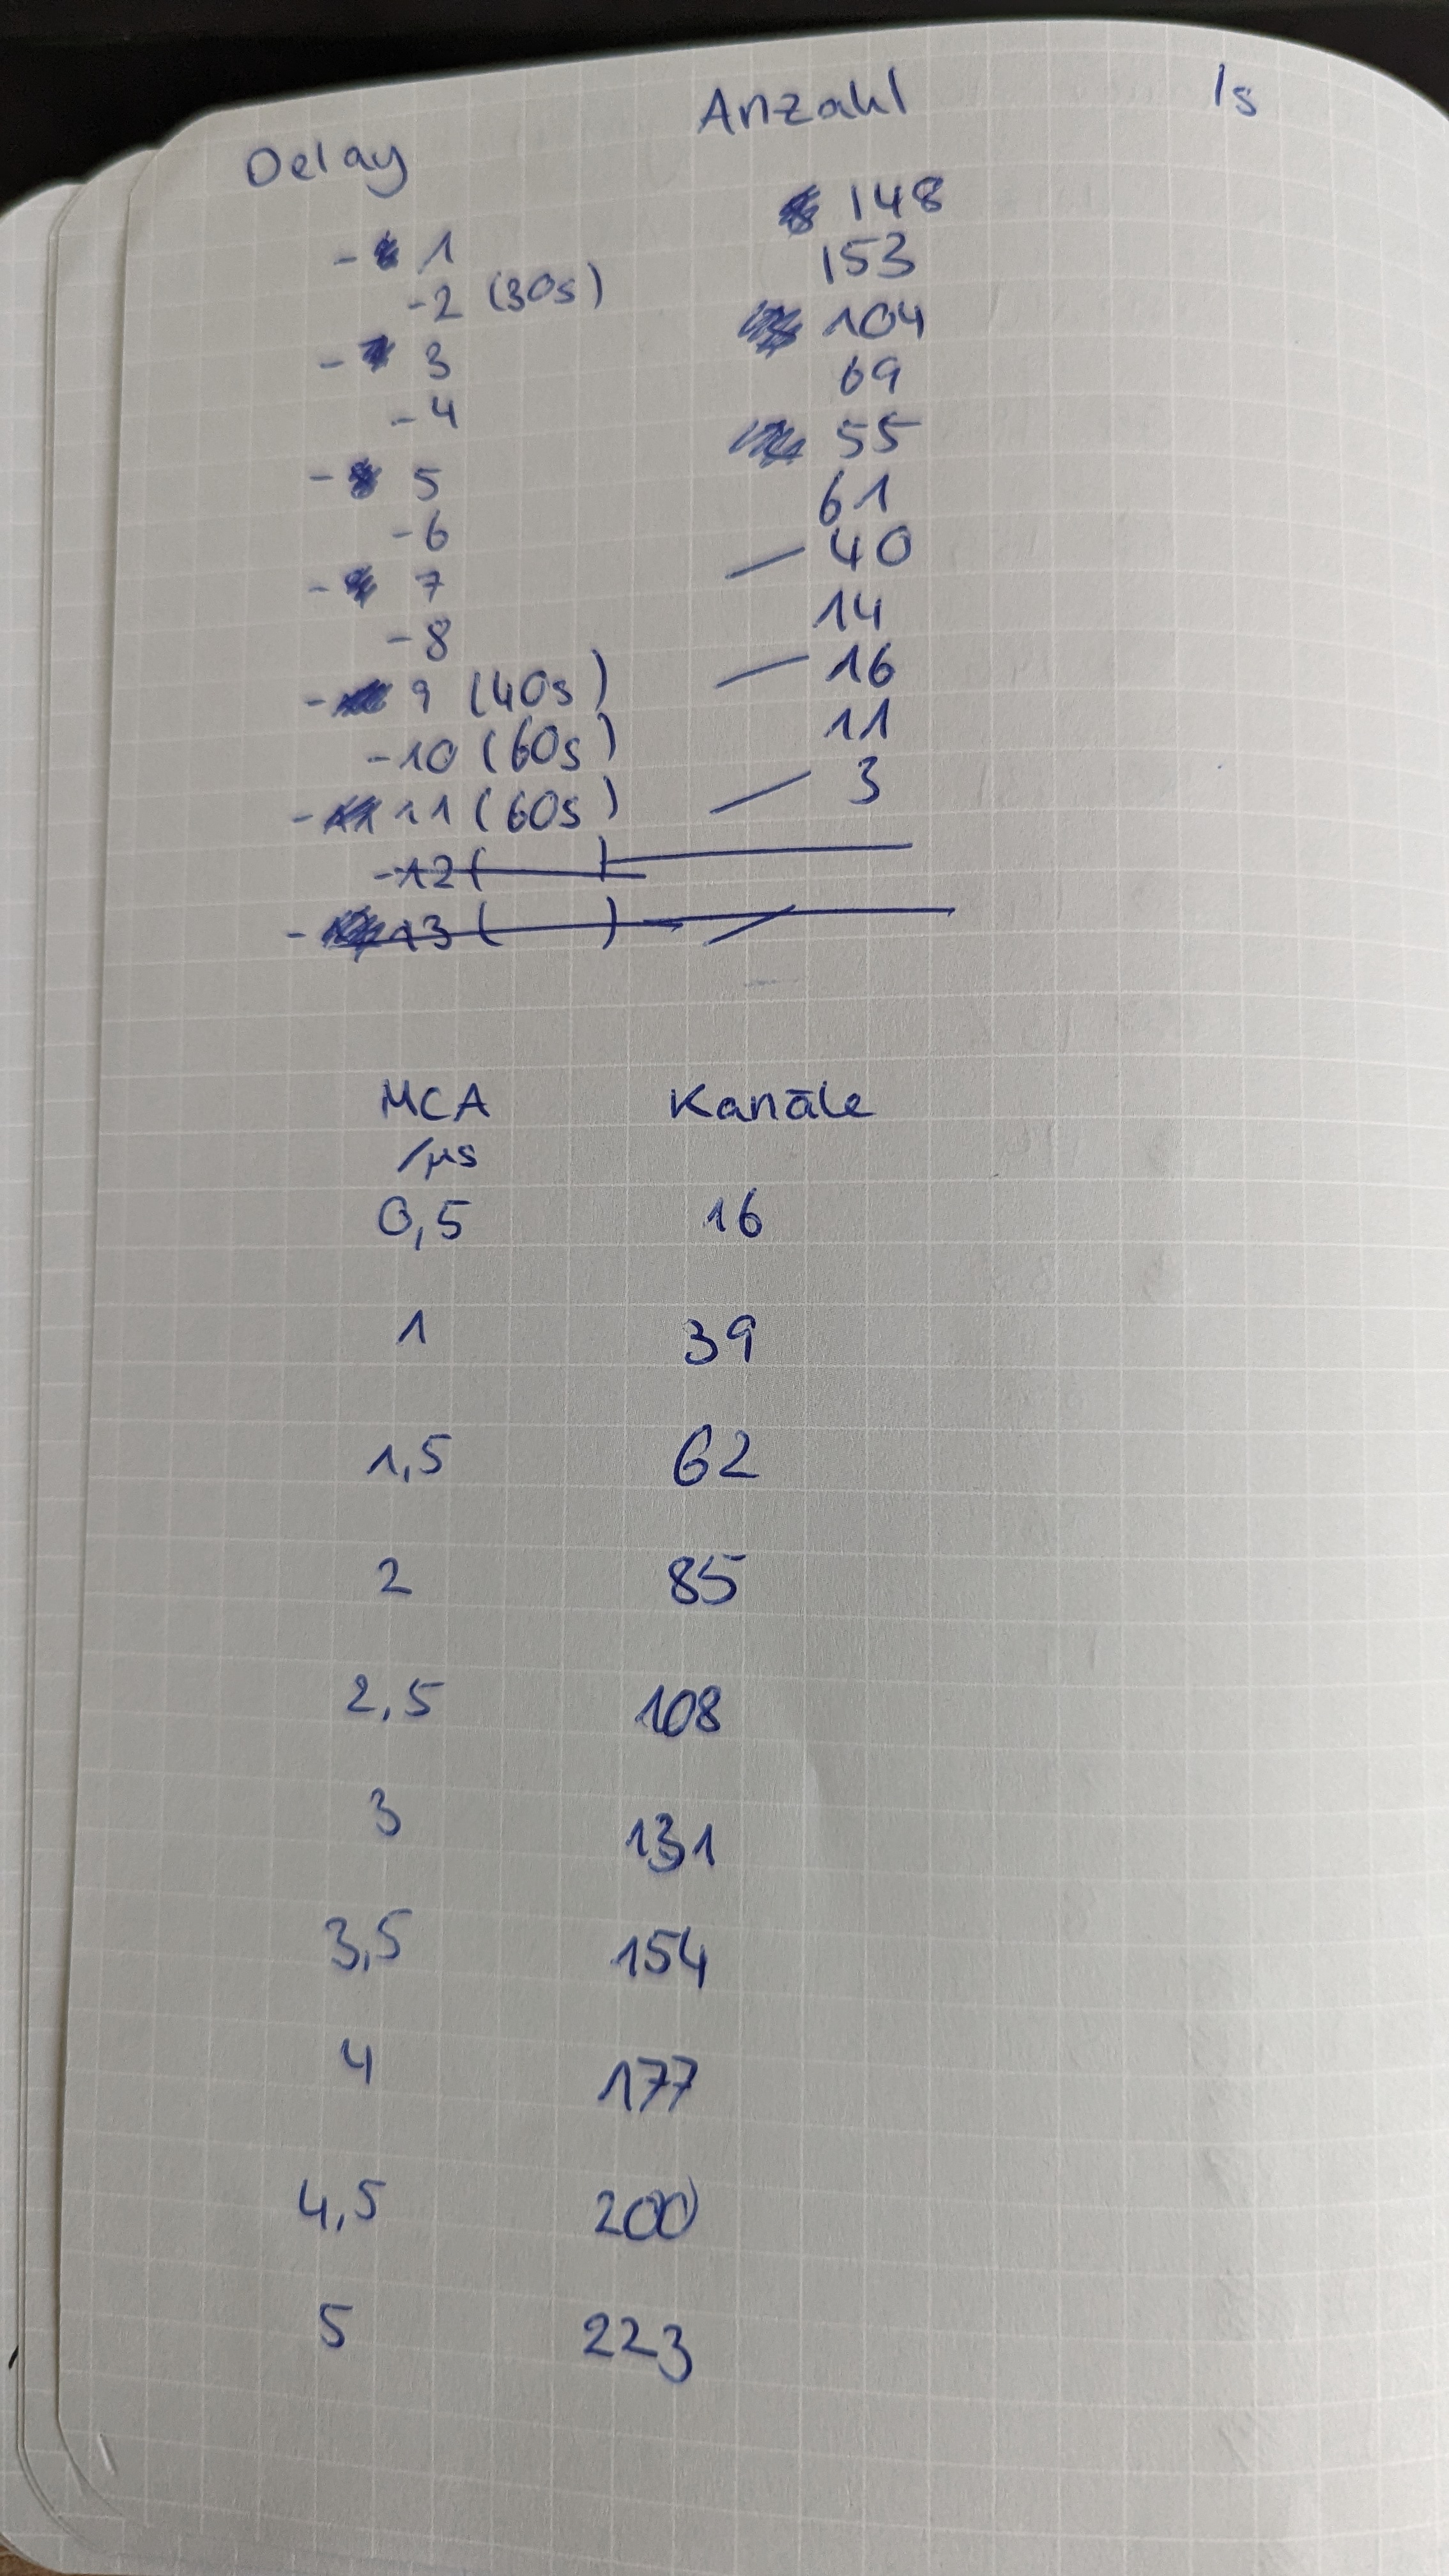 Delay Anzahl /s
- 1 148
-2 (30s) 153
- 3 104
-4 69
- 5 55
-6 61
- 7 40
-8 14
- 9 (40s) 16
-10 (60s) 11
- 11 (60s) 3
-12 ( )
- 13 ( )
MCA Kanäle
/µs
0,5 16
1 39
1,5 62
2 85
2,5 108
3 131
3,5 154
4 177
4,5 200
5 223